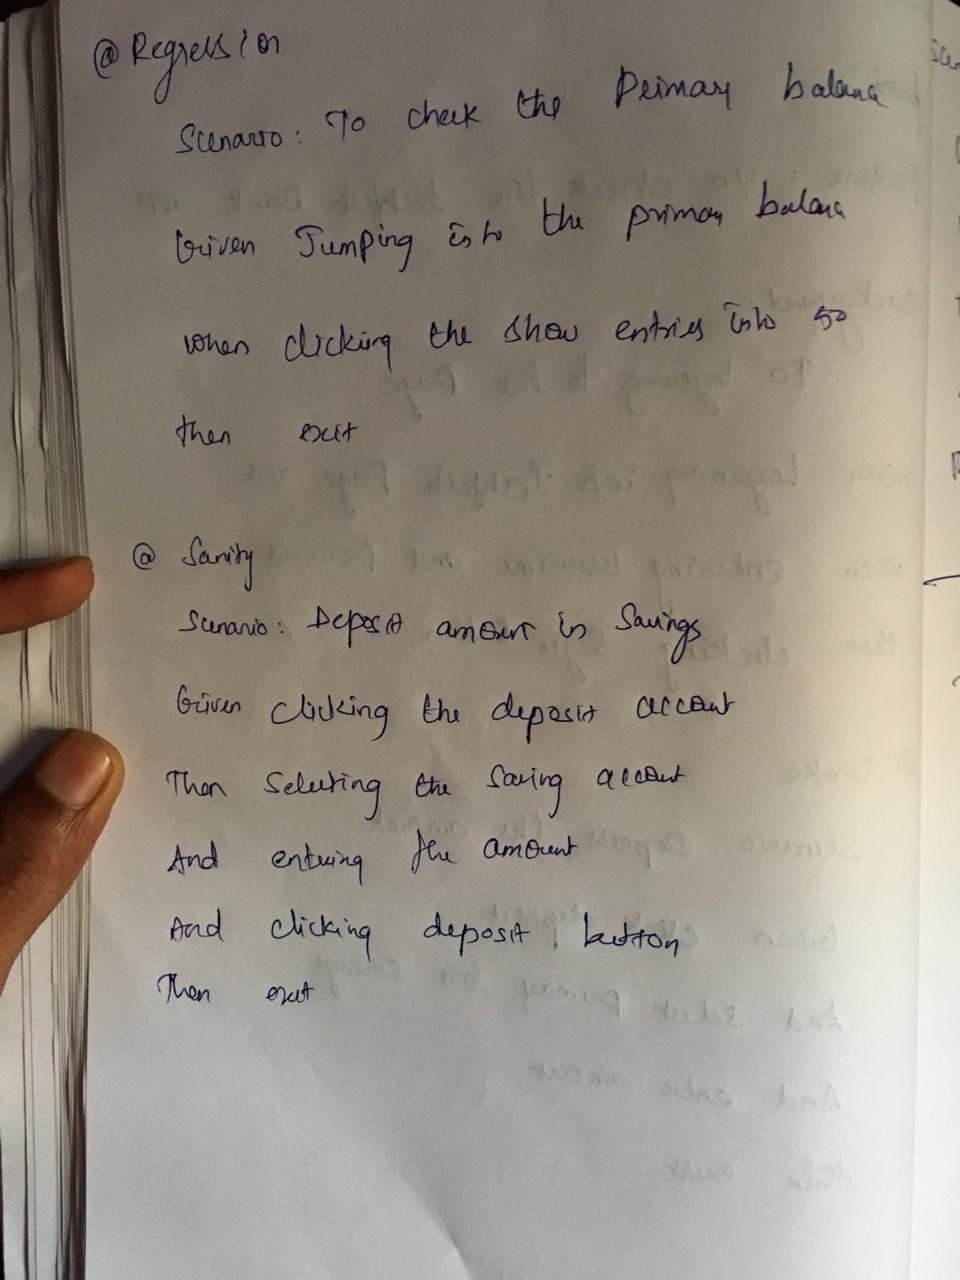 @ Regression
Scenario: To check the Primary balance
Given Jumping into the primary balance
when clicking the show entries into 50
then exit
@ Sanity
Scenario: Deposit amount in Savings
Given clicking the deposit account
Then Selecting the Saving account
And entering the amount
And clicking deposit button
Then exit